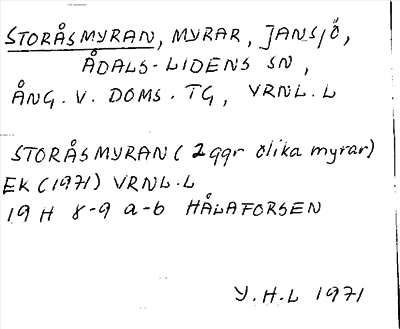 STORÅSMYRAN, MYRAR, JANSJÖ,
ÅDALS-LIDENS SN,
ÅNG. V. DOMS. TG, VRNL.L
STORÅSMYRAN (2 ggr olika myrar)
EK (1971) VRNL.L
19 H 8-9 a-b HÅLAFORSEN
Y.H.L 1971